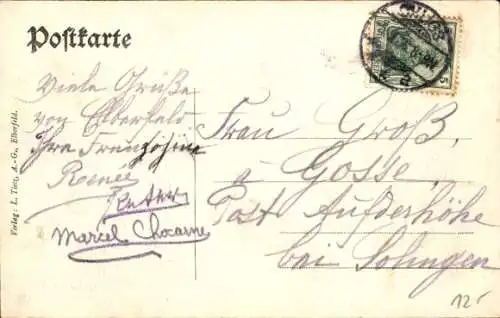 Postkarte
Viele Grüße
von Elberfeld
Ihre Französin
Renée
Marcel Chocarne
Frau Groß,
a Gosse,
Post Aufderhöhe
bei Solingen
Verlag: L. Tietz, A.-G., Elberfeld.
12.-